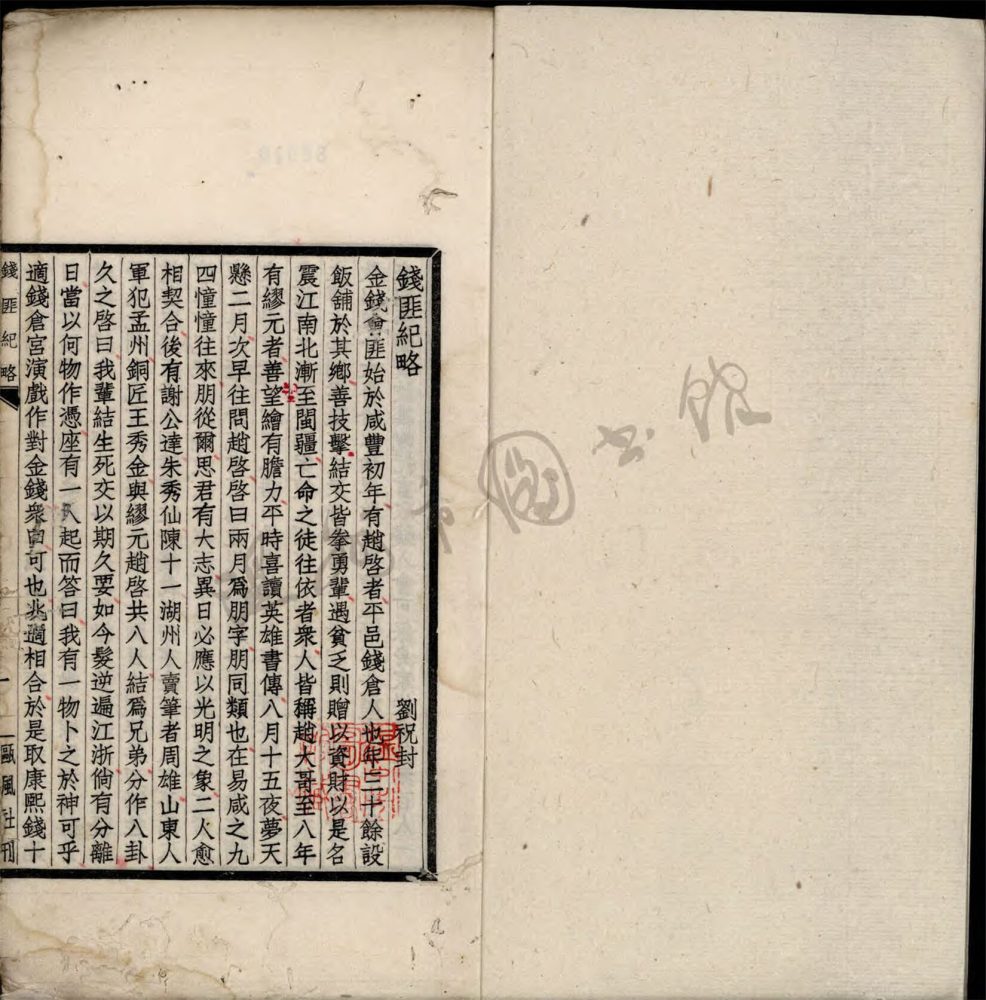 錢匪紀略
劉祝封
金錢會匪始於咸豐初年有趙啓者平邑錢倉人也年三十餘設
飯舖於其鄉善技擊結交皆拳勇輩遇貧乏則贈以資財以是名
震江南北漸至閩疆亡命之徒往依者衆人皆稱趙大哥至八年
有繆元者善望繪有膽力平時喜讀英雄書傳八月十五夜夢天
懸二月次早往問趙啓啓曰兩月爲朋字朋同類也在易咸之九
四憧憧往來朋從爾思君有大志異日必應以光明之象二人愈
相契合後有謝公達朱秀仙陳十一湖州人賣筆者周雄山東人
軍犯孟州銅匠王秀金與繆元趙啓共八人結爲兄弟分作八卦
久之啓曰我輩結生死交以期久要如今髮逆遍江浙倘有分離
日當以何物作憑座有一人起而答曰我有一物卜之於神可乎
適錢倉宮演戲作對金錢衆曰可也兆適相合於是取康熙錢十
錢匪紀略
一
甌風社刊
圖書館